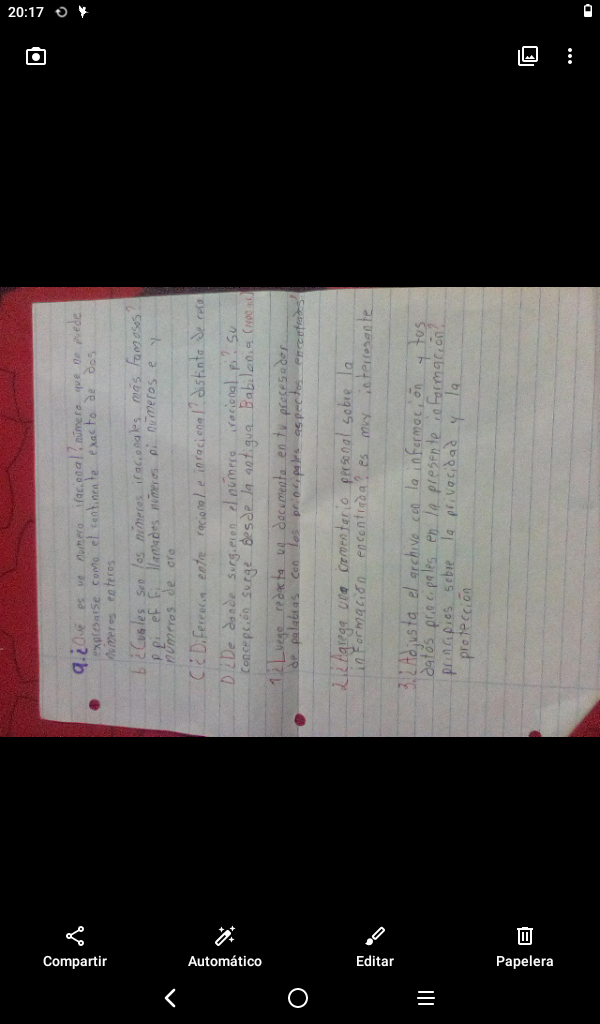 20:17
a.¿Qué es un numero iracional? número que no puede
expresarse como el continente exacto de dos
números enteros
b ¿Cuales son los números iracionales más famosos?
p pi ef fi, llamados números pi números e y
números de oro
C ¿Diferencia entre racional e inracional? distinta de
D ¿De donde surgieron el número irracional pi? Su
concepción surge Desde la antigua Babilonia
1 ¿Luego redacta un documento en tu procesador
de palabras con los principales aspectos encontrados
2. ¿Agrega una comentario personal sobre la
información encontrada? es muy interrosante
3. ¿Adjusta el archivo con la información y tus
datos principales en la presente información?
principios sobre la privacidad y la
protección
Compartir
Automático
Editar
Papelera